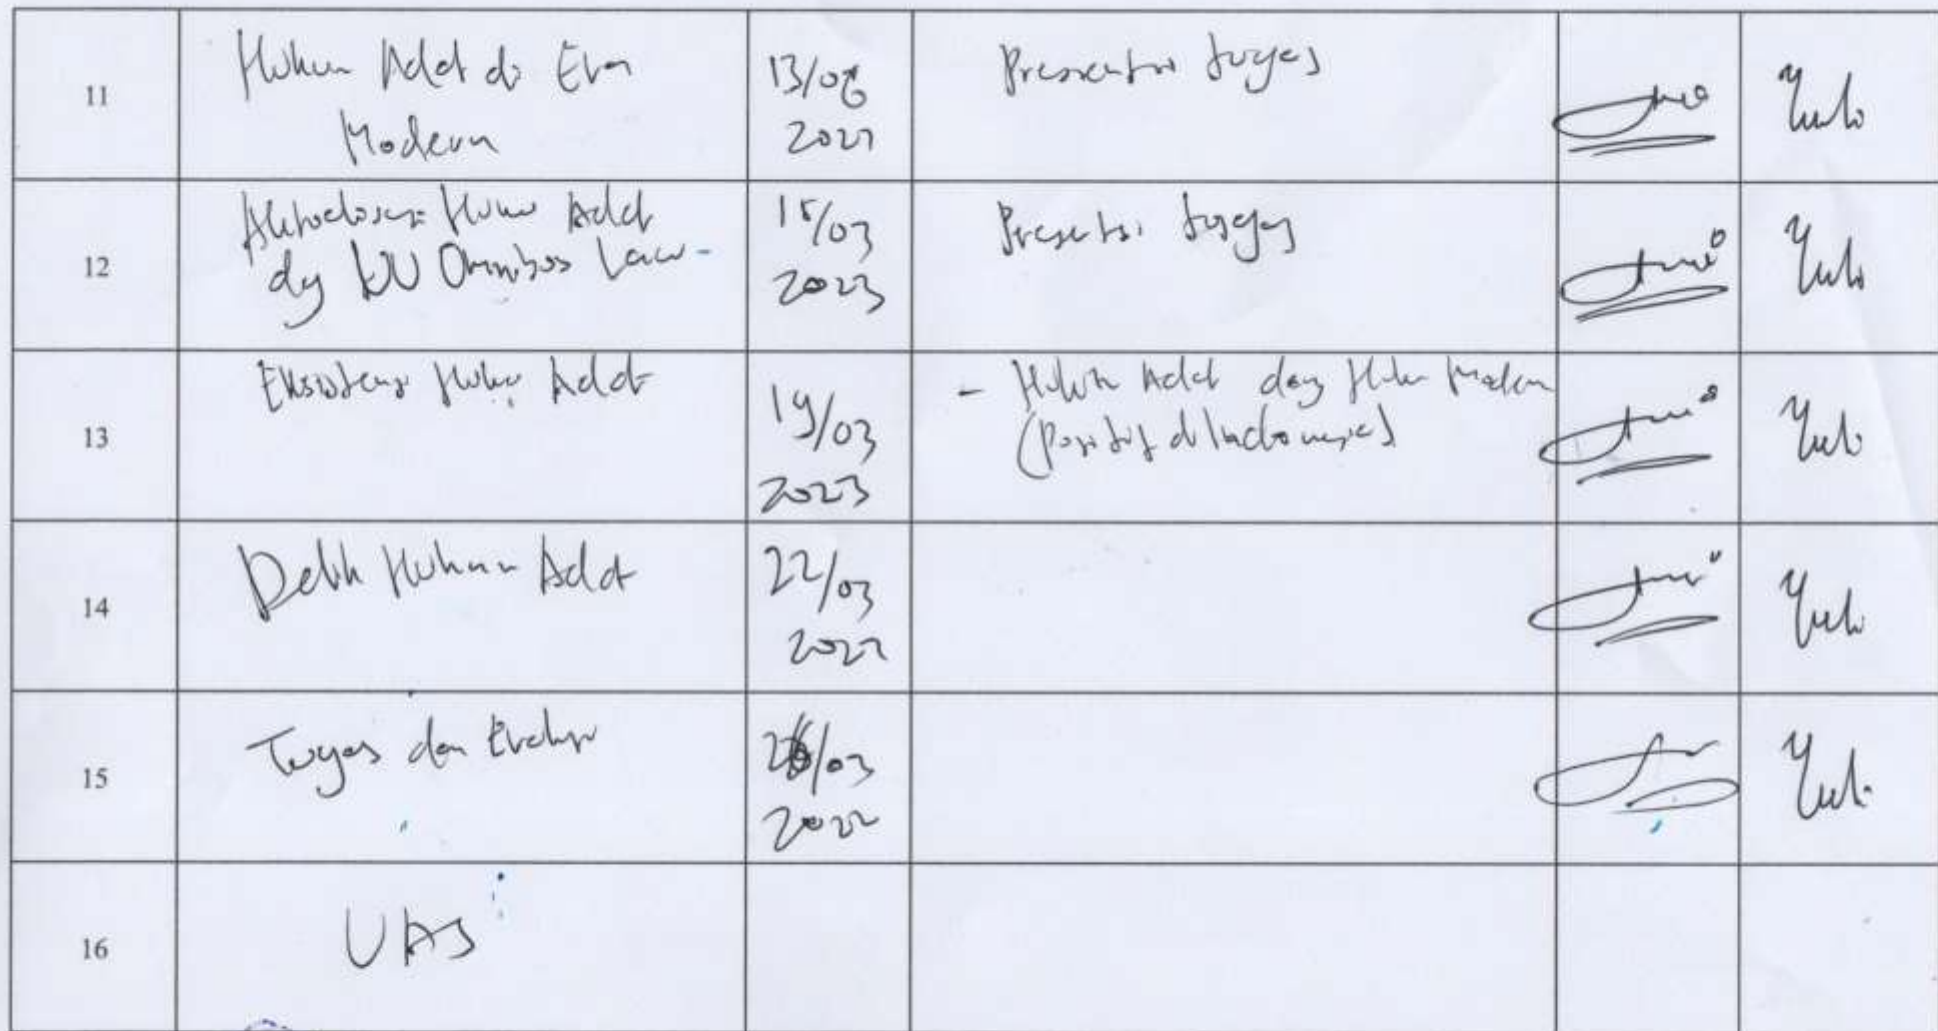 11
Hukum Adat di Era
Modern
13/03
2023
Presentasi tugas
12
Hukum Adat
dg UU Omnibus Law
15/03
2023
Presentasi tugas
13
Eksistensi Hukum Adat
19/03
2023
- Hukum Adat dan Hukum Modern
(positif di Indonesia)
14
Delik Hukum Adat
22/03
2022
15
Tugas dan Evaluasi
/03
2022
16
UAS